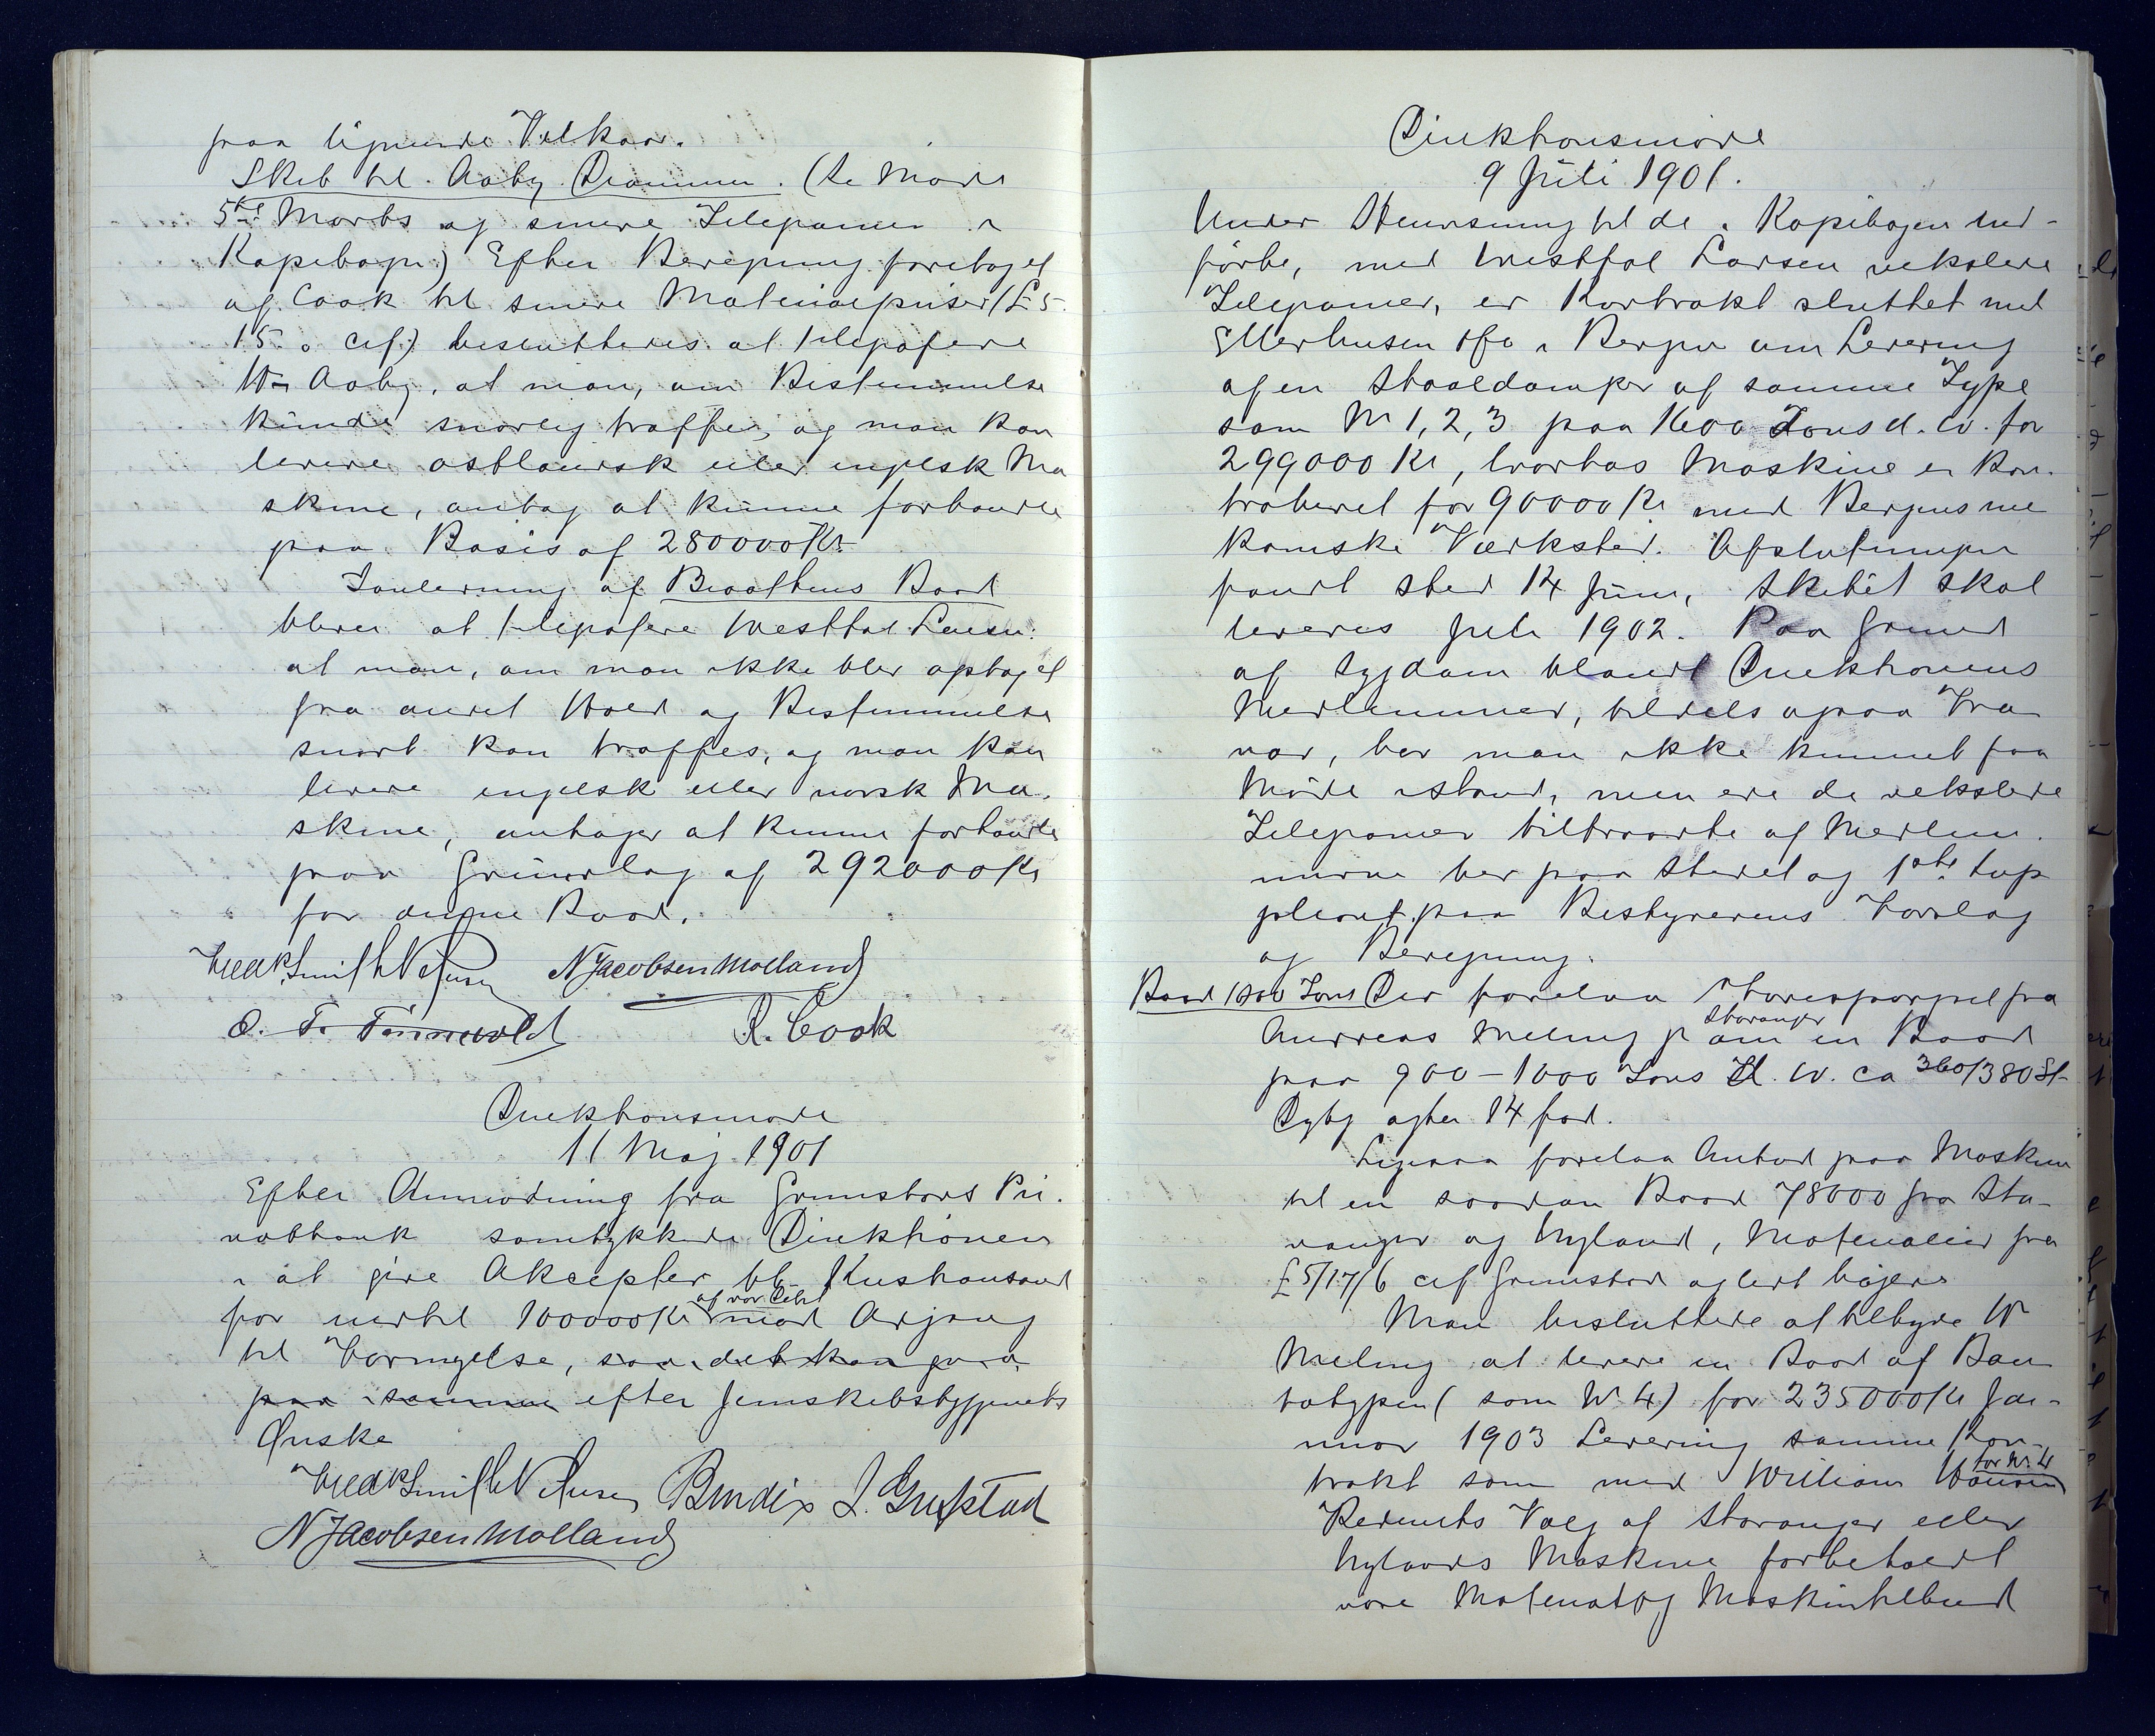 paa lignende Vilkaar.
Skib til Aaby Drammen. (Se Møde
5te Marts og senere Telegramer i
Kopibogen) Efter Beregning foretaget
af Cook til senere Materialpriser (£ 5.
15. 0 cif) besluttedes at telegrafere
Aaby, at man, om Bestemmelse
kunde snarlig træffes, og man kan
levere østlandsk eller engelsk Ma
skine, antog at kunne forhandle
paa Basis af 280000 Kr
Fornying af Braathens Baad
blev at telegrafere Westfal Larsen:
at man, om man ikke blev optaget
fra andet Hold og Bestemmelse
snart kan træffes, og man kan
levere engelsk eller norsk Ma.
skine, antager at kunne forhandle
paa Grundlag af 292000 Kr
for denne Baad.
Fredk Smith Petersen N Jacobsen Molland
O. T. Tønnevold R. Cook
Direktionsmøde
11 Maj 1901
Efter Anmodning fra Grimstads Pri.
vatbank samtykkede Direktionen
i at give Aksepter til Kristianssand
for indtil 100000 Kr af vor Debet mod Adgang
til Fornyelse, saa det kan gaa
paa samme efter Jernskibsbyggeriets
Ønske
Fredk Smith Petersen Bendix J. Grefstad
N Jacobsen Molland
Direktionsmøde
9 Juli 1901.
Under Henvisning til de i Kopibogen ind-
førte, med Westfal Larsen vekslede
Telegramer, er Kontrakt sluttet med
Ellerhusen & Co i Bergen om Levering
af en Staaldamper af samme Type
som No 1, 2, 3 paa 1600 Tons d. w. for
299000 Kr, hvortas Maskine er kon.
traheret for 90000 Kr med Bergens me
kaniske Værksted. Afslutningen
fandt sted 14 Juni, Skibet skal
leveres Juli 1902. Paa Grund
af Sygdom blandt Direktionens
Medlemmer, tildels ogsaa Fra
vær, har man ikke kunnet faa
Møde istand, men ere de vekslede
Telegramer tiltraadte af Medlem.
merne her paa Stedet og 1ste Sup
pleant paa Bestyrerens Forslag
og Beregning.
Baad 1000 Tons Der forelaa Forespørgsel fra
Andreas Meling jr Stavanger om en Baad
paa 900 - 1000 Tons d. w. ca 360/380 St.
Dybg agter 14 fod.
Ligesaa forelaa Anbud paa Maskin
til en saadan Baad 78000 fra Sta-
vanger og Nyland, Materialier fra
£ 5/17/6 cif Grimstad og lidt højere
Man besluttede at tilbyde Hr
Meling at levere en Baad af Ban
totypen (som No 4) for 235000 Kr Jan-
uar 1903 Levering samme Kon-
trakt som med William Hansen for No 4
Rederiets Valg af Stavanger eller
Nylands Maskine forbeholdt
vore Material og Maskintilbud